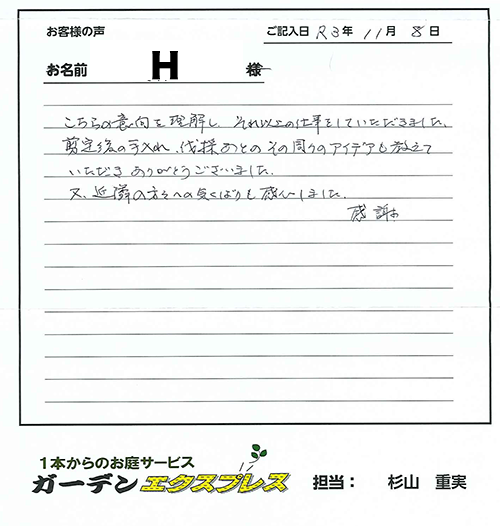 お客様の声
ご記入日 R3年 11月 8日
お名前 H 様
こちらの意向を理解し、それ以上の仕事をしていただきました。
剪定後の手入れ、伐採あとのその周りのアイデアも教えて
いただきありがとうございました。
又、近隣の方々への気くばりも感心しました。
感謝
1本からのお庭サービス
ガーデンエクスプレス 担当： 杉山 重実